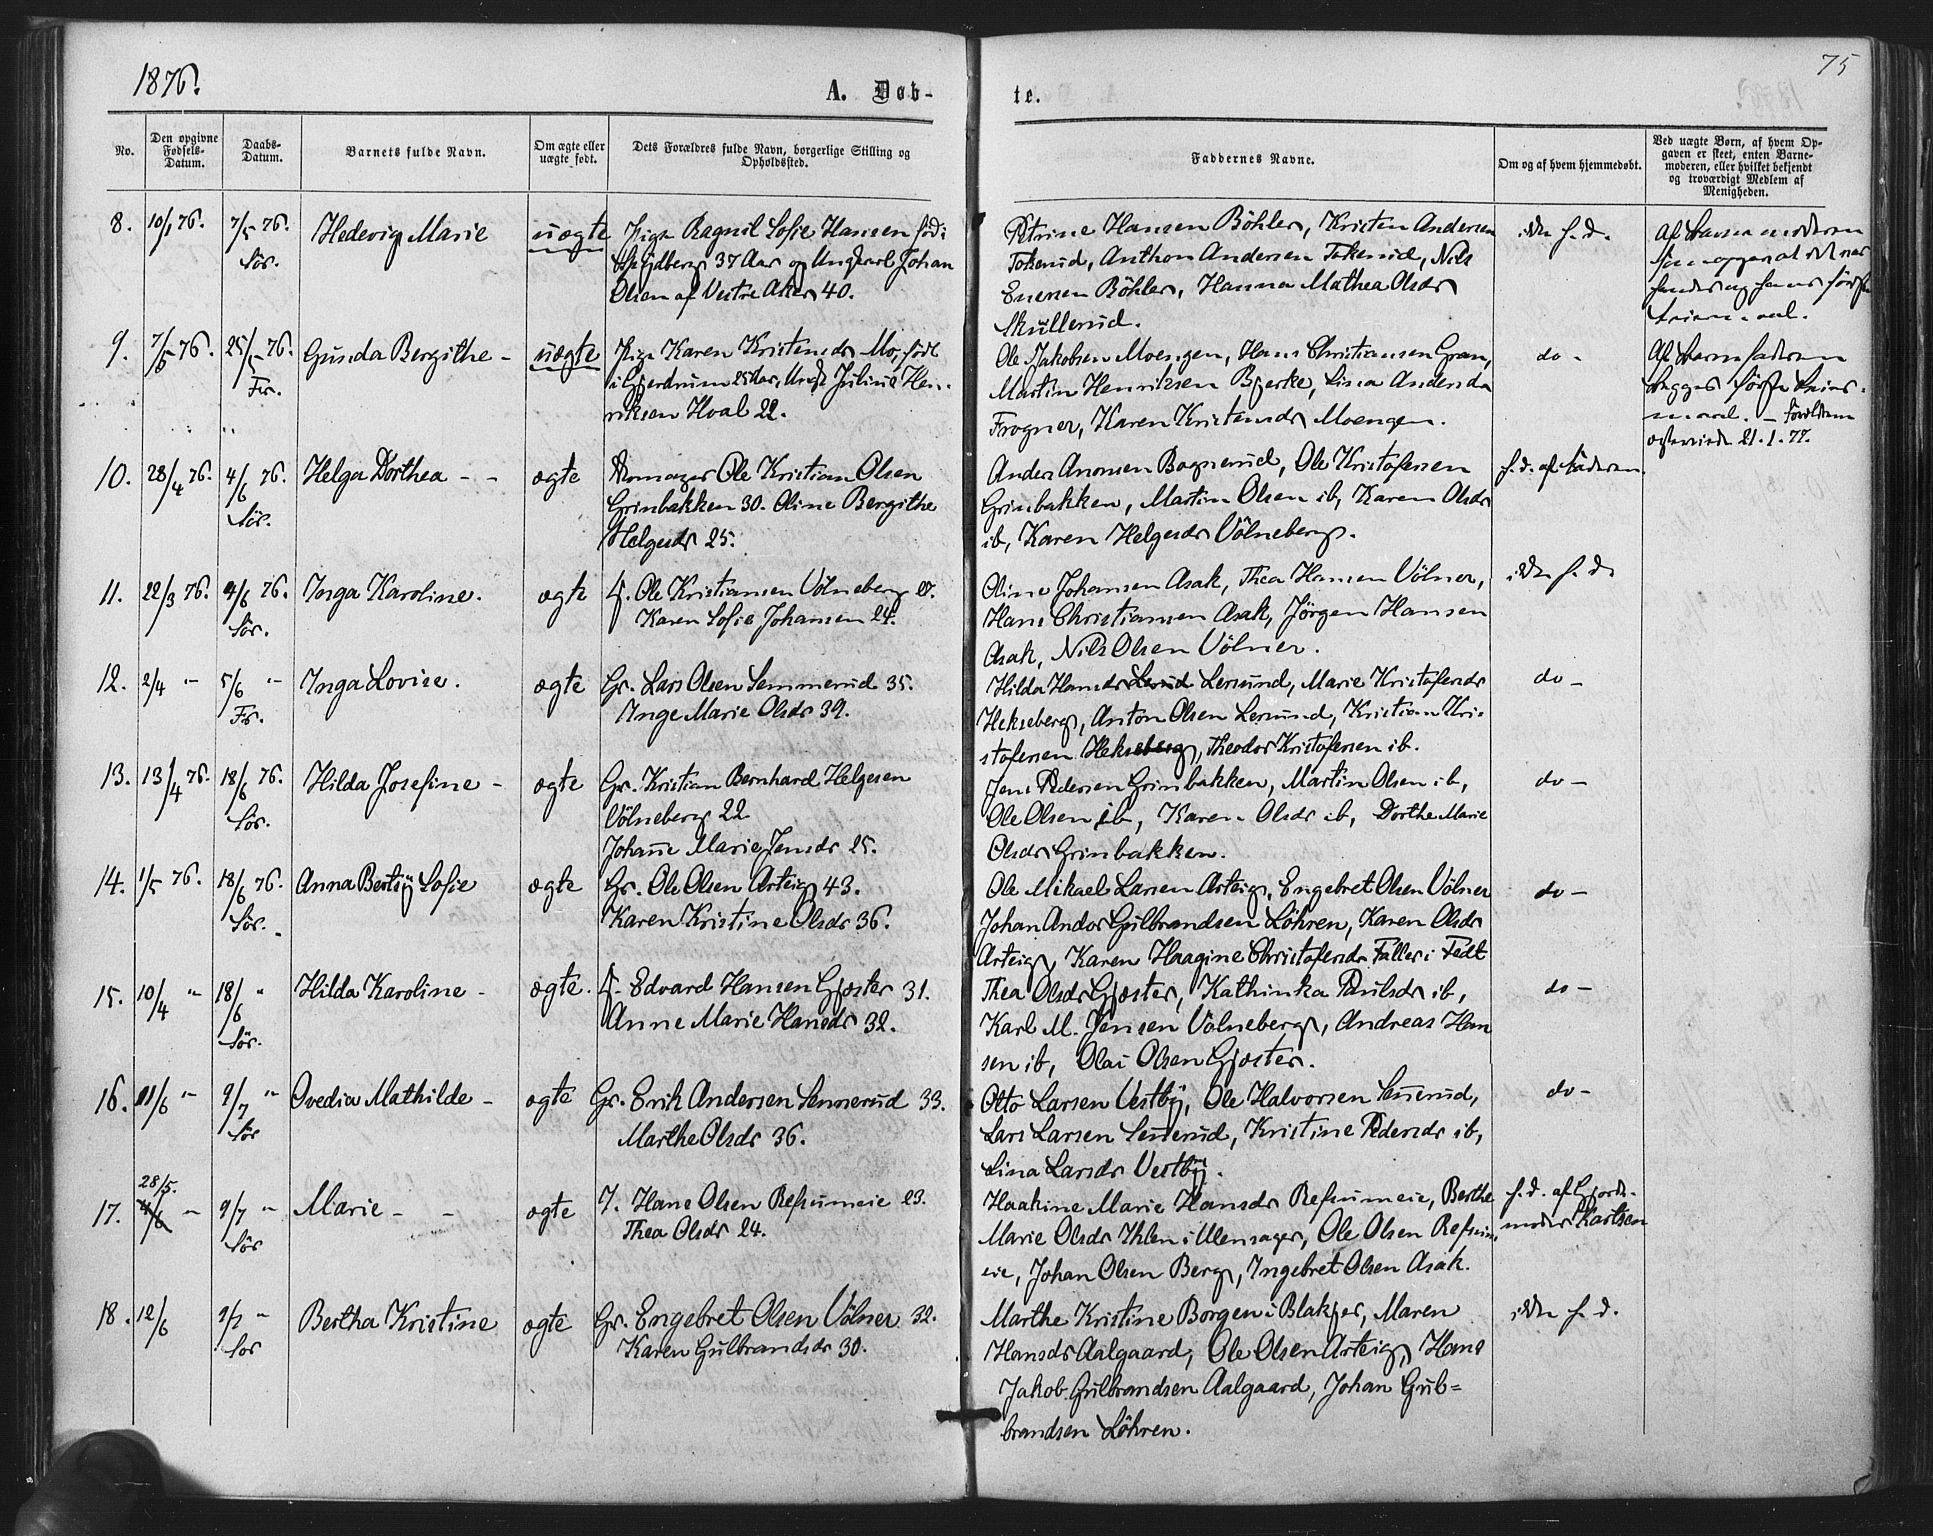 1876.
A. Døb-
te.
75
No.
Den opgivne Fødsels-Datum.
Daabs-Datum.
Barnets fulde Navn.
Om ægte eller uægte født.
Dets Forældres fulde Navn, borgerlige Stilling og Opholdssted.
Faddernes Navne.
Om og af hvem hjemmedøbt.
Ved uægte Børn, af hvem Op-
gaven er skeet, enten Barne-
moderen, eller hvilket bekjendt
og troværdigt Medlem af
Menigheden.
8. 10/1 76. 7/5 76. Hedevig Marie uægte Pige Ragnil Sofie Hansen född i
Sør.
37 Aar og Ungkarl Johan
Olsen af Vestre Aker 40.
Petrine Hansen Böhler, Kristen Andersen
Tokerud, Anthon Andersen Tokerud, Nils
Enersen Böhler, Hanna Mathea Olsdr
Skullerud.
ikke h. d.
Af Barnemoderen
9. 7/5 76. 25/5 76. Gunda Bergithe - uægte Pige Karen Kristensdr Mo, född
Fr.
i Gjerdrum 25 Aar, Ungk Julius Hen-
riksen Hval 22.
Ole Jakobsen Moengen, Hans Christiansen Gran,
Martin Henriksen Bjerke, Lina Andersdr
Frogner, Karen Kristensdr Moengen.
do -
Af Barnefaderen
begges första Leier-
maal. - Forældrene
ægteviede 21.1.77.
10. 28/4 76. 4/6 76. Helga Dorthea - - ægte Ole Kristian Olsen
Sør.
Grinbakken 30. Oline Bergithe
Helgesdr 25.
Anders Amonsen Bognerud, Ole Kristofersen
Grinbakken, Martin Olsen ib, Karen Olsdr
ib, Karen Helgesdr Völneberg.
h. d. af Faderen
11. 22/3 76. 4/6 76. Inga Karoline. ægte F. Ole Kristiansen Völneberg 27.
Sør.
Karen Sofie Johansen 24.
Oline Johansen Asak, Thea Hansen Völner,
Hans Christiansen Asak, Jørgen Hansen
Asak, Nils Olsen Völner.
ikke h. d.
12. 2/4 " 5/6 " Inga Lovise. ægte Gr. Lars Olsen Semmerud 35.
Fr.
Inge Marie Olsdr 39.
Hilda Hansdr Lersund, Marie Kristofersdr
Hekseberg, Anton Olsen Lersund, Kristian Kri-
stofersen Hekseberg, Theodor Kristofersen ib.
do -
13. 13/4 76. 18/6 76. Hilda Josefine - ægte Gr. Kristian Bernhard Helgesen
Sør.
Völneberg 22
Johanne Marie Jensdr 25.
Jens Pedersen Grinbakken, Martin Olsen ib,
Ole Olsen ib, Karen Olsdr ib, Dorthe Marie
Olsdr Grinbakken.
do -
14. 1/5 76. 18/6 76. Anna Bertÿ Sofie ægte Gr. Ole Olsen Arteig 43.
Sør.
Karen Kristine Olsdr 36.
Ole Mikael Larsen Arteig, Engebret Olsen Völner
Johan Andor Gulbrandsen Löhren, Karen Olsdr
Arteig, Karen Haagine Christofersdr Faller i Fedt
do -
15. 10/4 " 18/6 " Hilda Karoline - ægte. F. Edvard Hansen Gjøster 31.
Sør.
Anne Marie Hansdr 32.
Thea Olsdr Gjøster, Kathinka Paulsdr ib,
Karl M. Jensen Völneberg, Andreas Han
sen ib, Olai Olsen Gjøster.
do -
16. 11/6 " 9/7 " Ovedia Mathilde - ægte Gr. Erik Andersen Sennerud 33.
Sør
Marthe Olsdr 36.
Otto Larsen Vestbÿ, Ole Halvorsen Sennerud,
Lars Larsen Sennerud, Kristine Pedersdr ib,
Lina Larsdr Vestbÿ.
do -
28/5.
17. 4/6 " 9/7 " Marie - - ægte I. Hans Olsen Refsumeie 23.
Sør
Thea Olsdr 24.
Haakine Marie Hansdr Refsumeie, Berthe
Marie Olsdr Ihlen i Ullensager, Ole Olsen Refsum
eie, Johan Olsen Berg, Ingebret Olsen Asak.
h. d. af Gjord-
moder Karlsen
18. 12/6 9/7 " Bertha Kristine ægte Gr. Engebret Olsen Völner 32.
Sør
Karen Gulbrandsdr 30.
Marthe Kristine Borgen i Blakjer, Maren
Hansdr Aalgaard, Ole Olsen Arteig, Hans
Jakob Gulbrandsen Aalgaard, Johan Gub-
brandsen Löhren.
ikke h. d.